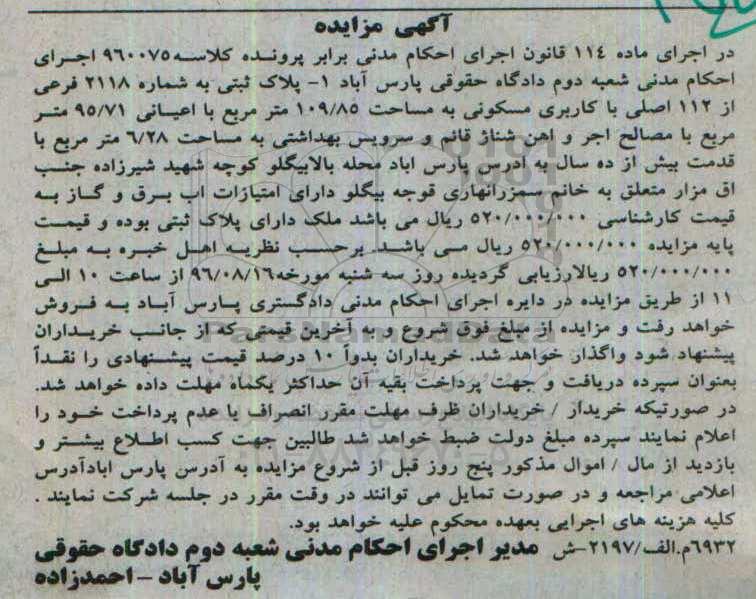 آگهی مزایده
در اجرای ماده ۱۱٤ قانون اجرای احکام مدنی برابر پرونده کلاسه۹٦۰۰۷٥ اجرای
احکام مدنی شعبه دوم دادگاه حقوقی پارس آباد ۱- پلاک ثبتی به شماره ۲۱۱۸ فرعی
از ۱۱۲ اصلی با کاربری مسکونی به مساحت ۱۰۹/۸٥ متر مربع با اعیانی ۹٥/۷۱ متر
مربع با مصالح اجر و اهن شناژ قائم و سرویس بهداشتی به مساحت ٦/۲۸ متر مربع با
قدمت بیش از ده سال به آدرس پارس اباد محله بالابیگلو کوچه شهید شیرزاده جنب
اق مزار متعلق به خانم سمزرانهاری قوجه بیگلو دارای امتیازات اب برق و گاز به
قیمت کارشناسی ٥۲۰/۰۰۰/۰۰۰ ریال می باشد ملک دارای پلاک ثبتی بوده و قیمت
پایه مزایده ٥۲۰/۰۰۰/۰۰۰ ریال می باشد. برحسب نظریه اهل خبره به مبلغ
٥۲۰/۰۰۰/۰۰۰ ریالارزیابی گردیده روز سه شنبه مورخه۹٦/۰۸/۱٦ از ساعت ۱۰ الی
۱۱ از طریق مزایده در دایره اجرای احکام مدنی دادگستری پارس آباد به فروش
خواهد رفت و مزایده از مبلغ فوق شروع و به آخرین قیمتی که از جانب خریداران
پیشنهاد شود واگذار خواهد شد. خریداران بدواً ۱۰ درصد قیمت پیشنهادی را نقداً
بعنوان سپرده دریافت و جهت پرداخت بقیه آن حداکثر یکماه مهلت داده خواهد شد.
در صورتیکه خریدار / خریداران ظرف مهلت مقرر انصراف یا عدم پرداخت خود را
اعلام نمایند سپرده مبلغ دولت ضبط خواهد شد طالبین جهت کسب اطلاع بیشتر و
بازدید از مال / اموال مذکور پنج روز قبل از شروع مزایده به آدرس پارس ابادآدرس
اعلامی مراجعه و در صورت تمایل می توانند در وقت مقرر در جلسه شرکت نمایند .
کلیه هزینه های اجرایی بعهده محکوم علیه خواهد بود.
٦۹۳۲م.الف/۲۱۹۷-ش مدیر اجرای احکام مدنی شعبه دوم دادگاه حقوقی
پارس آباد - احمدزاده